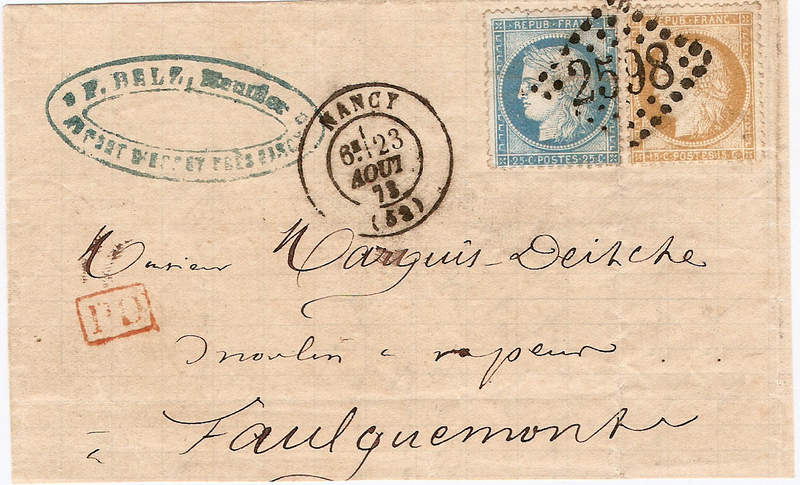 REPUB · FRANC
25 C · POSTES · 25 C
REPUB · FRANC
15 C · POSTES · 15 C
2598
F. BELZ, Meunier
NANCY
6E 23
AOUT
73
(52)
Monsieur Marquis-Deitche
PD
moulin à vapeur
à Faulquemont